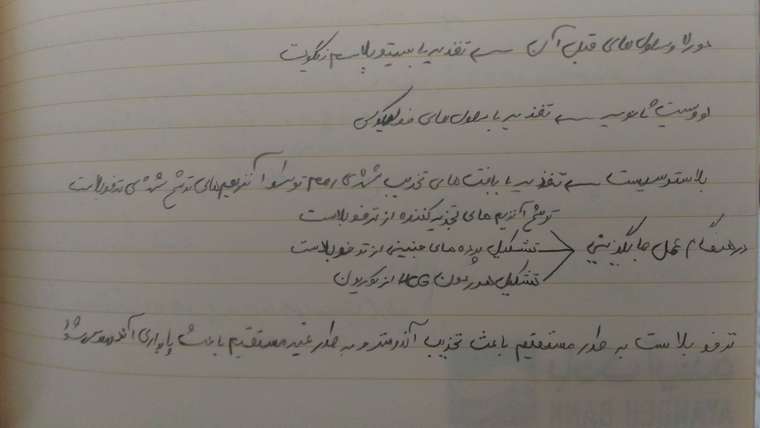 مورولا و سلول‌های قبل آن ← تغذیه با سیتوپلاسم زیگوت
اووسیت ثانویه ← تغذیه با سلول‌های فولیکولی
بلاستوسیست ← تغذیه با بافت‌های تخریب شده‌ی رحم توسط آنزیم‌های ترشح شده‌ی تروفوبلاست
ترشح آنزیم های تجزیه کننده از تروفوبلاست
درهنگام عمل جایگزینی تشکیل پرده های جنینی از تروفوبلاست
تشکیل هورمون HCG از کوریون
تروفوبلاست به طور مستقیم باعث تخریب آندومتر و به طور غیرمستقیم باعث پایداری آندومتر می‌شود
AYANDEH BANK